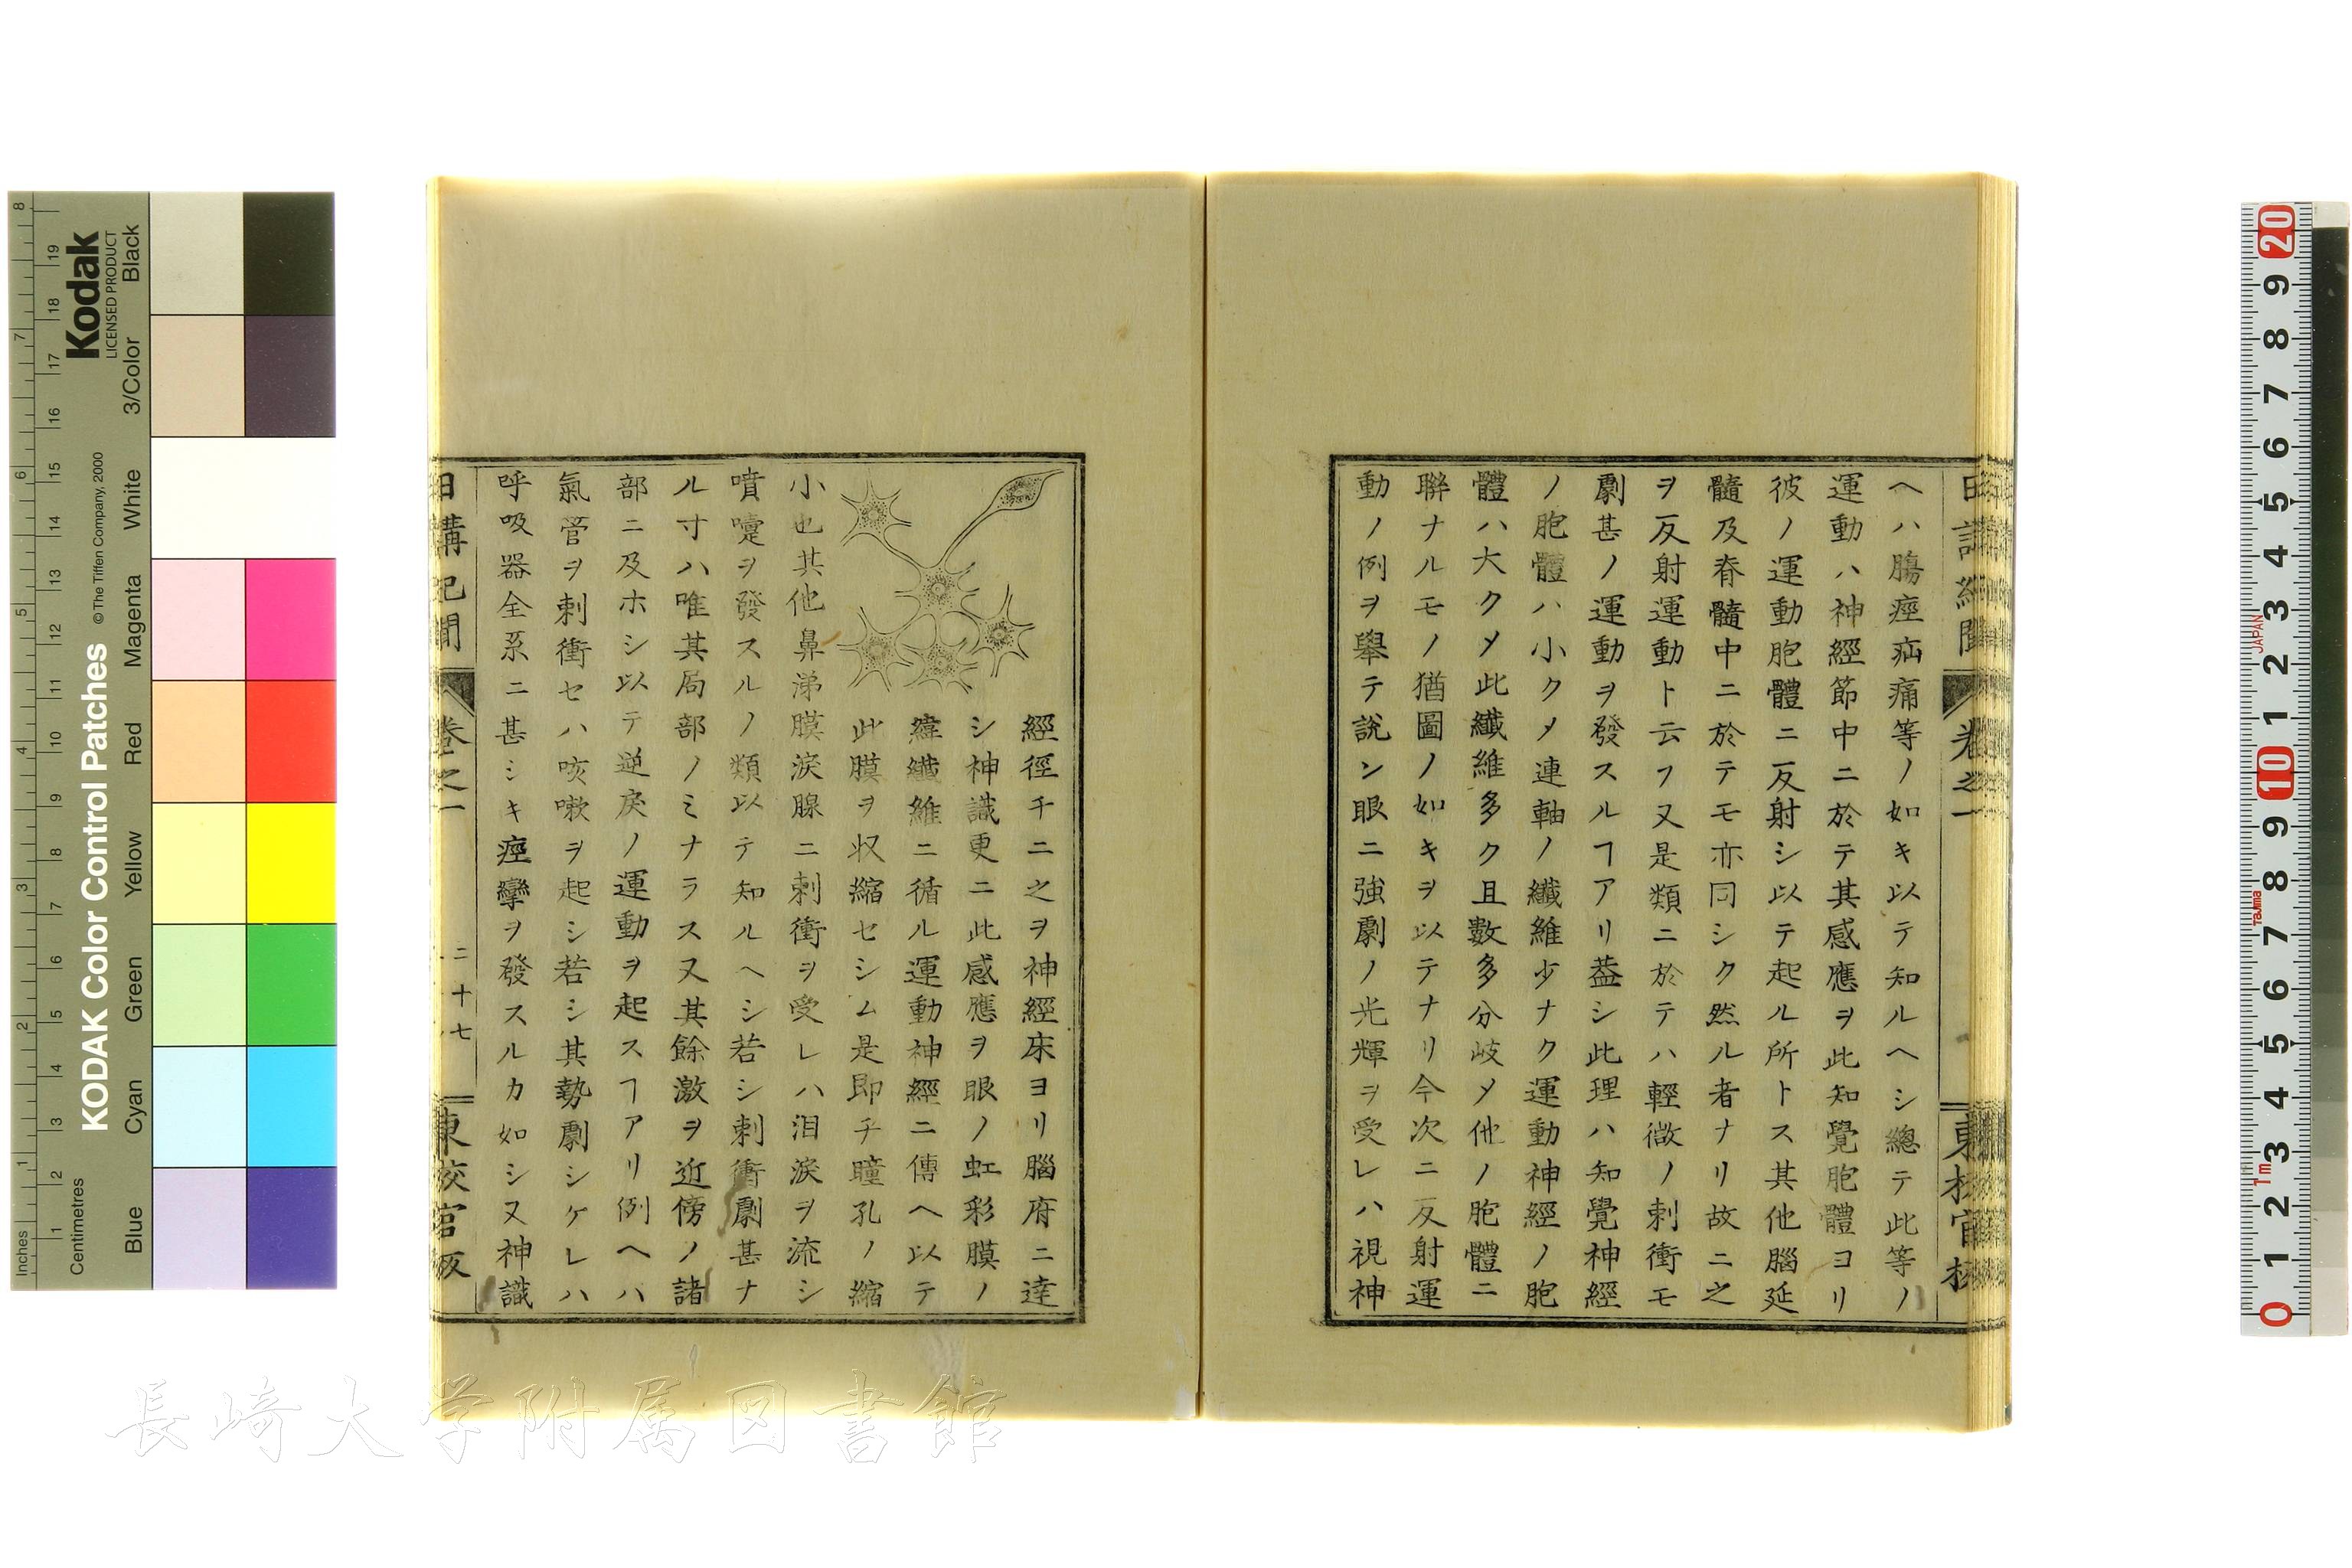 ヘハ膓痙疝痛等ノ如キ以テ知ルヘシ總テ此等ノ
運動ハ神經節中ニ於テ其感應ヲ此知覺胞體ヨリ
彼ノ運動胞體ニ反射シ以テ起ル所トス其他腦延
髓及脊髓中ニ於テモ亦同シク然ル者ナリ故ニ之
ヲ反射運動ト云フ又是類ニ於テハ輕微ノ刺衝モ
劇甚ノ運動ヲ發スルヿアリ葢シ此理ハ知覺神經
ノ胞體ハ小クメ連軸ノ纖維少ナク運動神經ノ胞
體ハ大クメ此纖維多ク且數多分岐メ他ノ胞體ニ
聯ナルモノ猶圖ノ如キヲ以テナリ今次ニ反射運
動ノ例ヲ舉テ説ン眼ニ強劇ノ光輝ヲ受レハ視神
經徑チニ之ヲ神經床ヨリ腦府ニ達
シ神識更ニ此感應ヲ眼ノ虹彩膜ノ
緯纖維ニ循ル運動神經ニ傳ヘ以テ
此膜ヲ収縮セシム是即チ瞳孔ノ縮
小也其他鼻涕膜淚腺ニ刺衝ヲ受レハ泪淚ヲ流シ
噴嚔ヲ發スルノ類以テ知ルヘシ若シ刺衝劇甚ナ
ル寸ハ唯其局部ノミナラス又其餘激ヲ近傍ノ諸
部ニ及ホシ以テ逆戾ノ運動ヲ起スヿアリ例ヘハ
氣管ヲ刺衝セハ咳嗽ヲ起シ若シ其勢劇シケレハ
呼吸器全系ニ甚シキ痙攣ヲ發スルカ如シ又神識
日講記聞 卷之一 二十七 東校官版
長崎大学附属図書館
Kodak
LICENSED PRODUCT
KODAK Color Control Patches
© The Tiffen Company, 2000
Inches
Centimetres
Blue Cyan Green Yellow Red Magenta White 3/Color Black
1 2 3 4 5 6 7 8
1 2 3 4 5 6 7 8 9 10 11 12 13 14 15 16 17 18 19
20 9 8 7 6 5 4 3 2 1 10 9 8 7 6 5 4 3 2 1 0
JAPAN
Tajima
1m